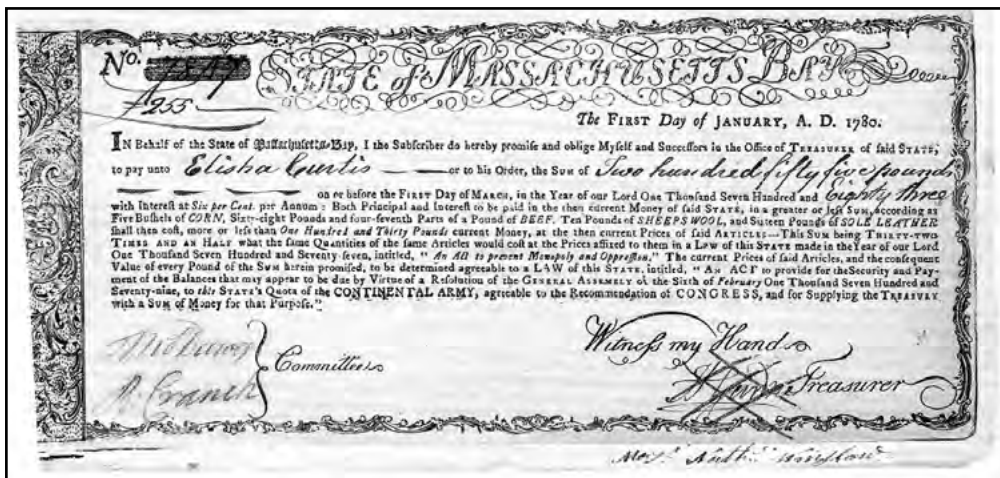 No.
£255
STATE of MASSACHUSETTS BAY
The FIRST Day of JANUARY, A. D. 1780.
IN Behalf of the State of Maſſachuſetts-Bay, I the Subſcriber do hereby promiſe and oblige Myſelf and Succeſſors in the Office of TREASURER of ſaid STATE,
to pay unto Elisha Curtis or to his Order, the SUM of Two hundred fifty five pounds
on or before the FIRST Day of MARCH, in the Year of our Lord One Thouſand Seven Hundred and Eighty three
with Intereſt at Six per Cent. per Annum: Both Principal and Intereſt to be paid in the then current Money of ſaid STATE, in a greater or leſs SUM, according as
Five Buſhels of CORN, Sixty-eight Pounds and four-ſeventh Parts of a Pound of BEEF, Ten Pounds of SHEEPS WOOL, and Sixteen Pounds of SOLE LEATHER
ſhall then coſt, more or leſs than One Hundred and Thirty Pounds current Money, at the then current Prices of ſaid ARTICLES—This SUM being THIRTY-TWO
TIMES AND AN HALF what the ſame Quantities of the ſame Articles would coſt at the Prices affixed to them in a LAW of this STATE made in the Year of our Lord
One Thouſand Seven Hundred and Seventy-ſeven, intitled, "An Act to prevent Monopoly and Oppreſſion." The current Prices of ſaid Articles, and the conſequent
Value of every Pound of the SUM herein promiſed, to be determined agreeable to a LAW of this STATE, intitled, "AN ACT to provide for the Security and Pay-
ment of the Balances that may appear to be due by Virtue of a Reſolution of the GENERAL ASSEMBLY of the Sixth of February One Thouſand Seven Hundred and
Seventy-nine, to this STATE'S Quota of the CONTINENTAL ARMY, agreeable to the Recommendation of CONGRESS, and for Supplying the TREASURY
with a SUM of Money for that Purpoſe."
Witneſs my Hand
Committee
R. Cranch
Treasurer
Winslow